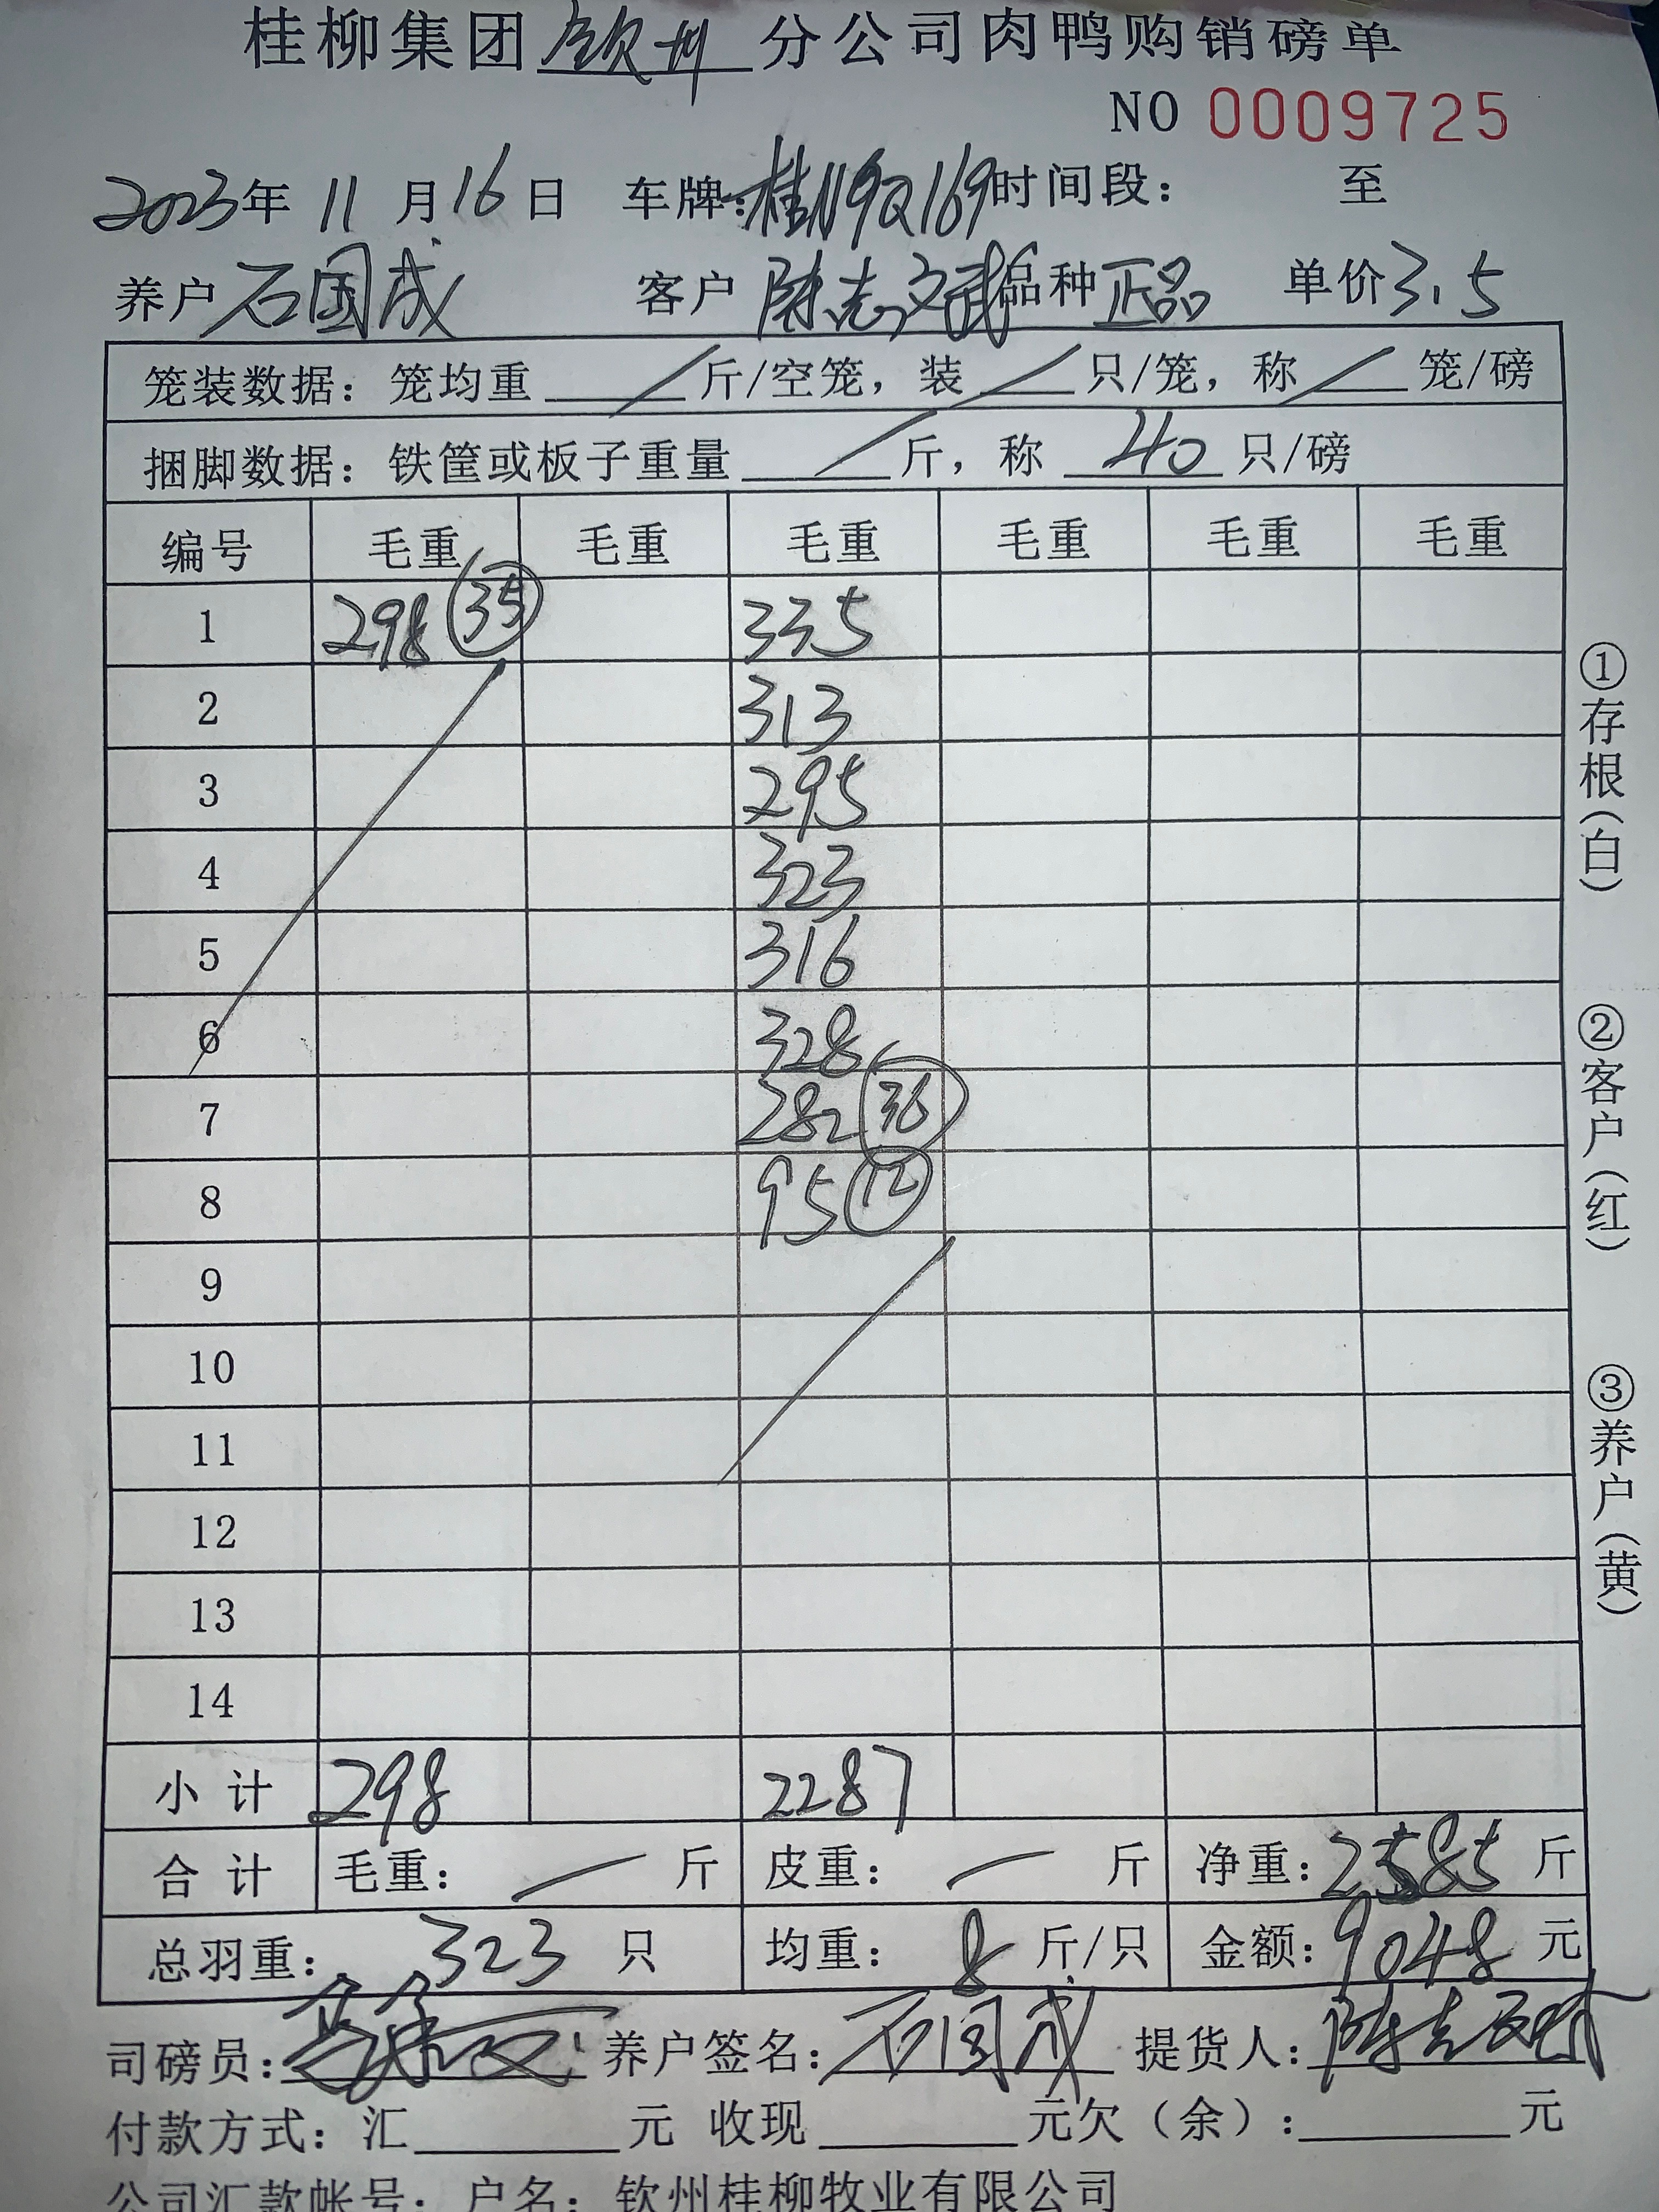 桂柳集团钦州分公司肉鸭购销磅单
NO 0009725
2023年 11 月 16 日 车牌:桂N9Q169 时间段: 至
养户 石国成 客户 陈志文 品种 正品 单价 3.5
笼装数据: 笼均重 / 斤/空笼, 装 / 只/笼, 称 / 笼/磅
捆脚数据: 铁筐或板子重量 / 斤, 称 40 只/磅
编号 毛重 毛重 毛重 毛重 毛重 毛重
1 298 35 335
2 313
3 295
4 323
5 316
6 328
7 282 36
8 95 12
9
10
11
12
13
14
小 计 298 2287
合 计 毛重: — 斤 皮重: — 斤 净重: 2585 斤
总羽重: 323 只 均重: 8 斤/只 金额: 9048 元
司磅员: 养户签名: 石国成 提货人:
付款方式: 汇 元 收现 元欠(余): 元
公司汇款帐号: 户名: 钦州桂柳牧业有限公司
①存根(白)
②客户(红)
③养户(黄)